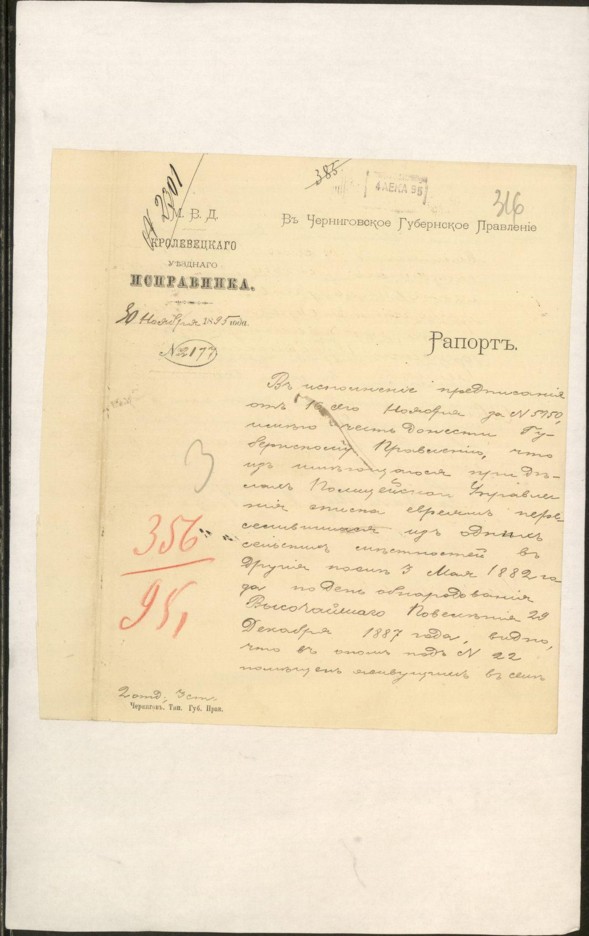 385
4 ДЕКА 95
316
№ 2201
М. В. Д.
КРОЛЕВЕЦКАГО
УѢЗДНАГО
ИСПРАВНИКА.
30 Ноября 1895 года.
№ 2177
Въ Черниговское Губернское Правленіе
Рапортъ.
Въ исполненіе предписанія
отъ 16 сего Ноября за № 5950,
имѣю честь донести Гу-
бернскому Правленію, что
изъ имѣющагося при дѣ-
лахъ Полицейскаго Управле-
нія списка евреямъ пере-
селившимся изъ однихъ
сельскихъ мѣстностей въ
другія послѣ 3 Мая 1882 го
да по день обнародованія
Высочайшаго Повелѣнія 29
Декабря 1887 года, видно,
что въ ономъ подъ № 22
помѣщенъ живущимъ въ селѣ
3
356
95,
2 отд, 3 ст.
Черниговъ. Тип. Губ. Прав.